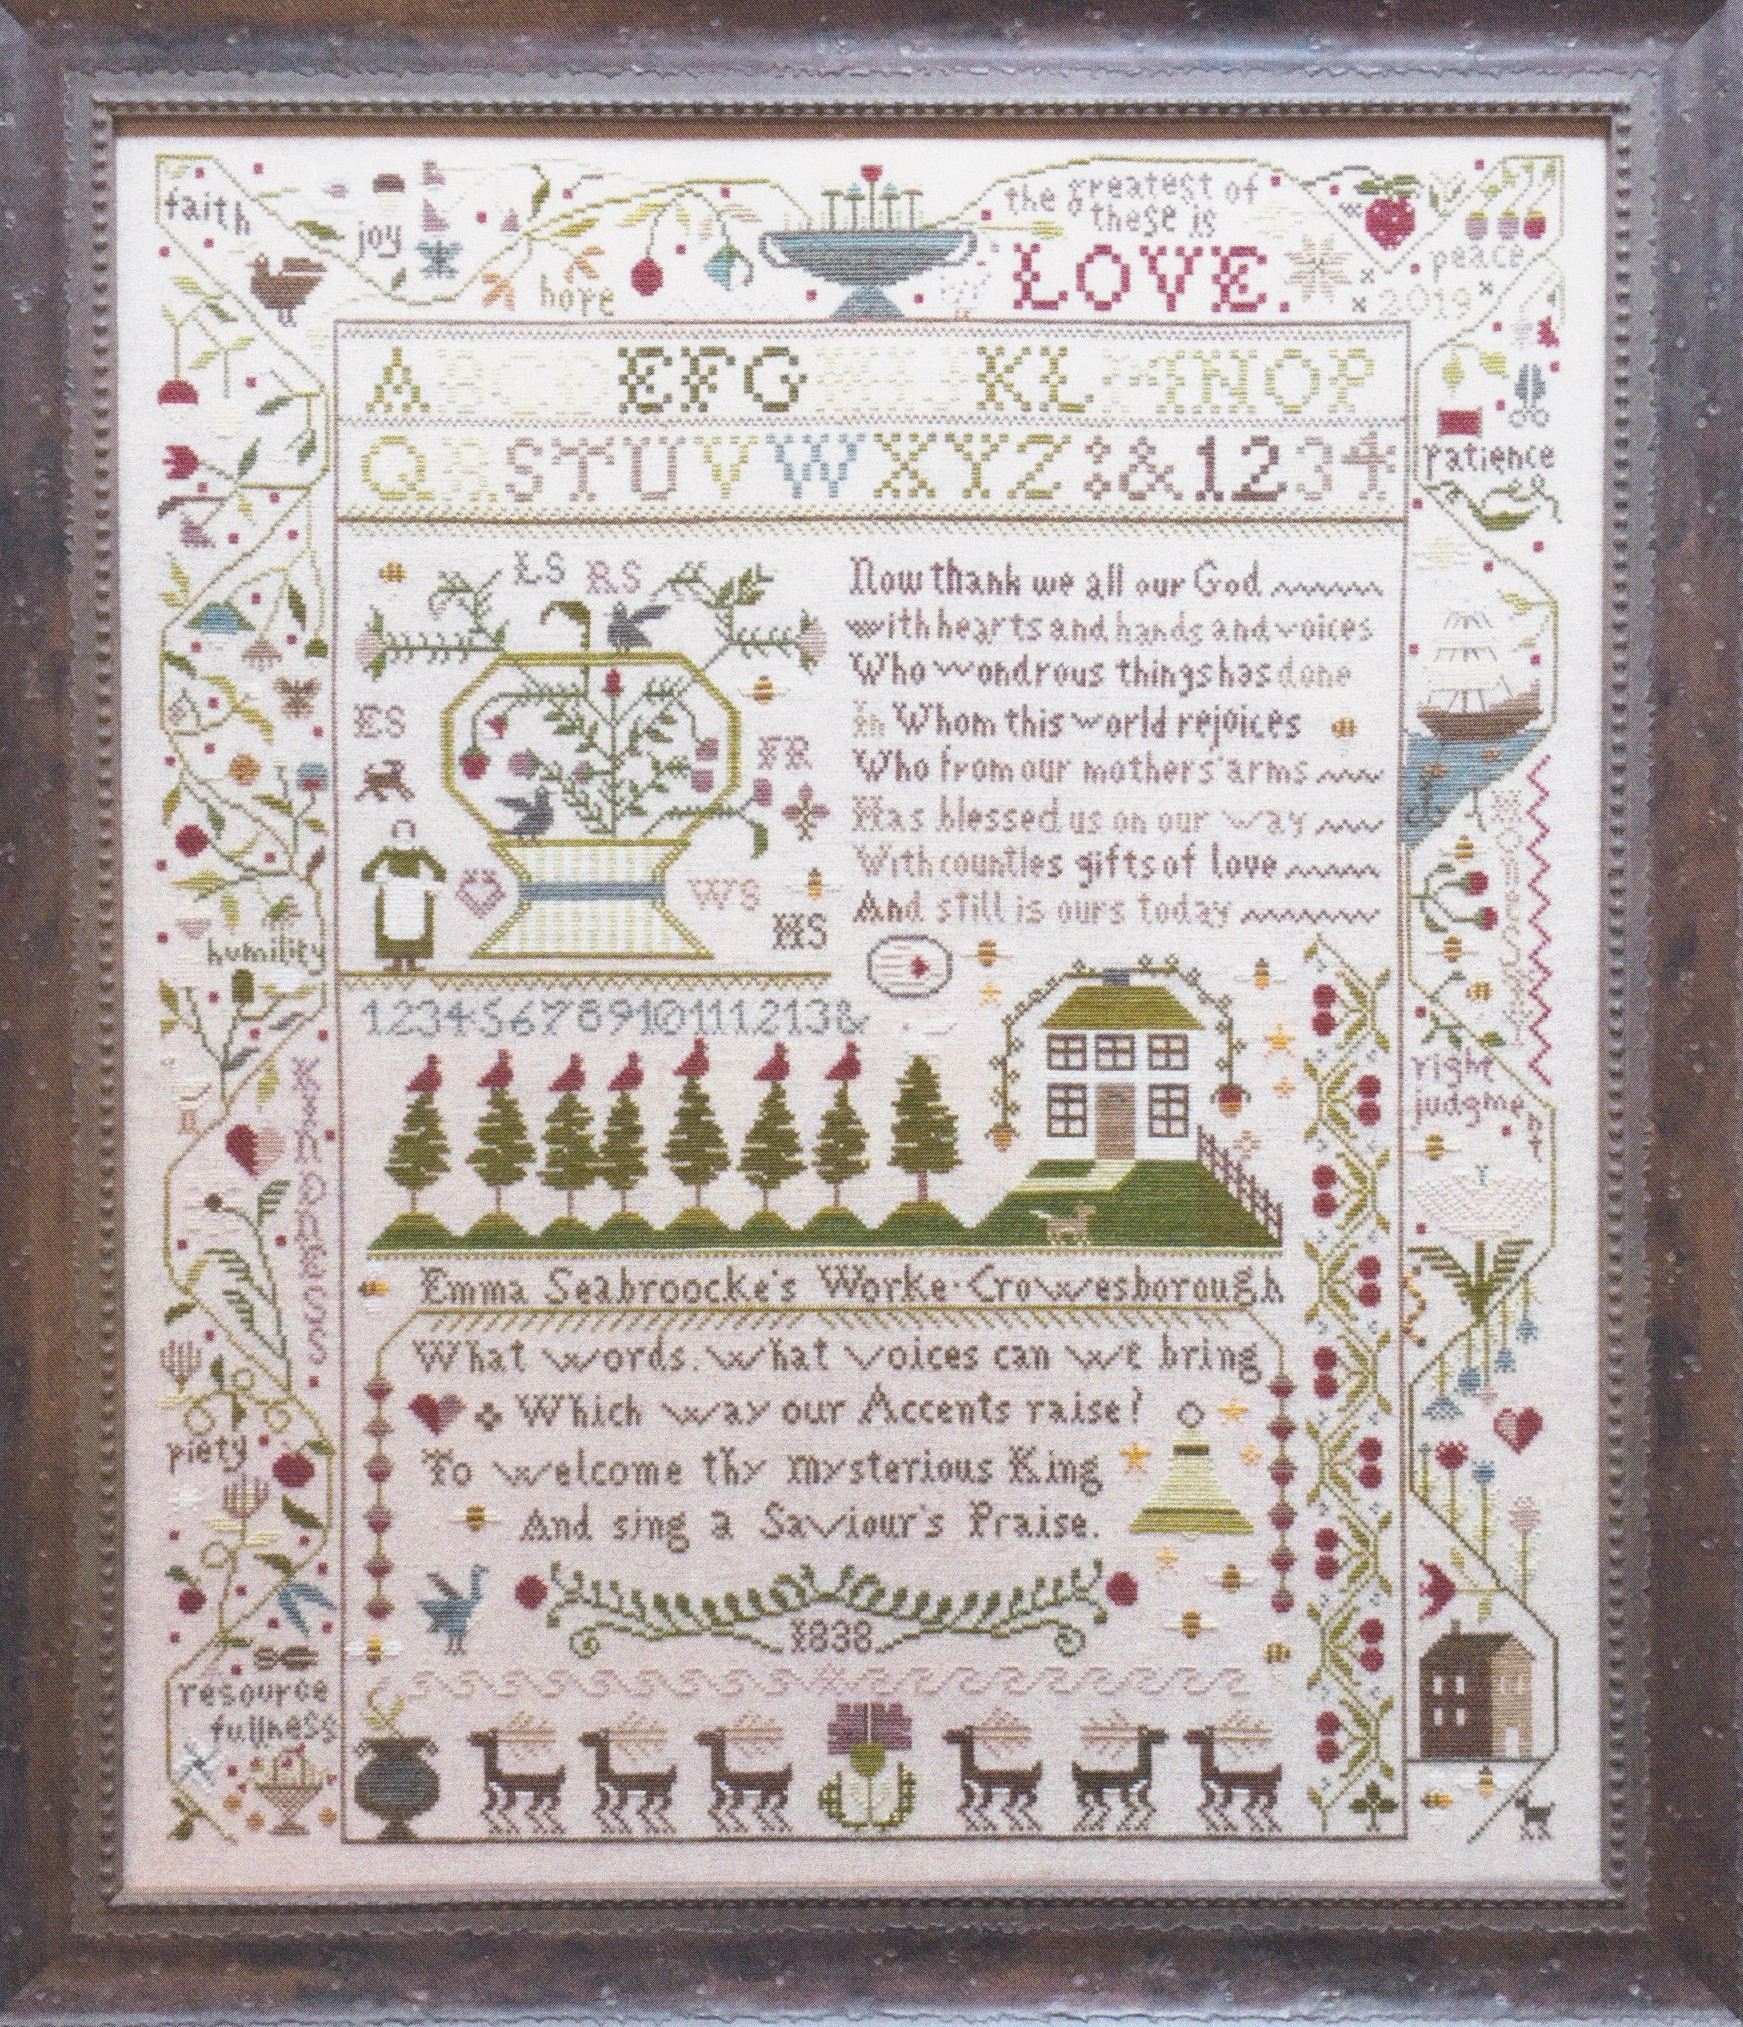 faith
joy
hope
the greatest of
these is
LOVE.
peace
2019
A B C D EFG H I J KL M N O P
Q R S T U V W X Y Z & 1 2 3 4
patience
LS RS
ES
FR
WS
HS
Now thank we all our God
with hearts and hands and voices
Who wondrous things has done
In Whom this world rejoices
Who from our mothers' arms
Has blessed us on our way
With countles gifts of love
And still is ours today
HONESTY
humility
1 2 3 4 5 6 7 8 9 10 11 12 13 &
KINDNESS
right
judgment
Emma Seabroocke's Worke · Crowesborough
What words. what voices can we bring
Which way our Accents raise?
To welcome thy mysterious King
And sing a Saviour's Praise.
1838
piety
resource
fullness